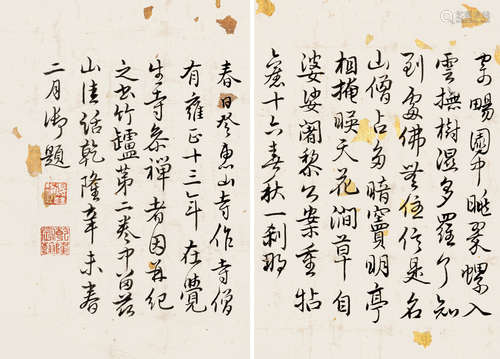 寄暢園中眺翠螺入
雲撫樹濕多羅了知
到處佛無住信是名
山僧占多暗竇明亭
相掩映天花澗草自
婆娑闍黎公案重拈
舉十六春秋一剎那
春日登惠山寺作寺僧
有雍正十三年在覺
生寺參禪者因再紀
之竹罏第二卷中留茲
山佳話乾隆辛未春
二月御題